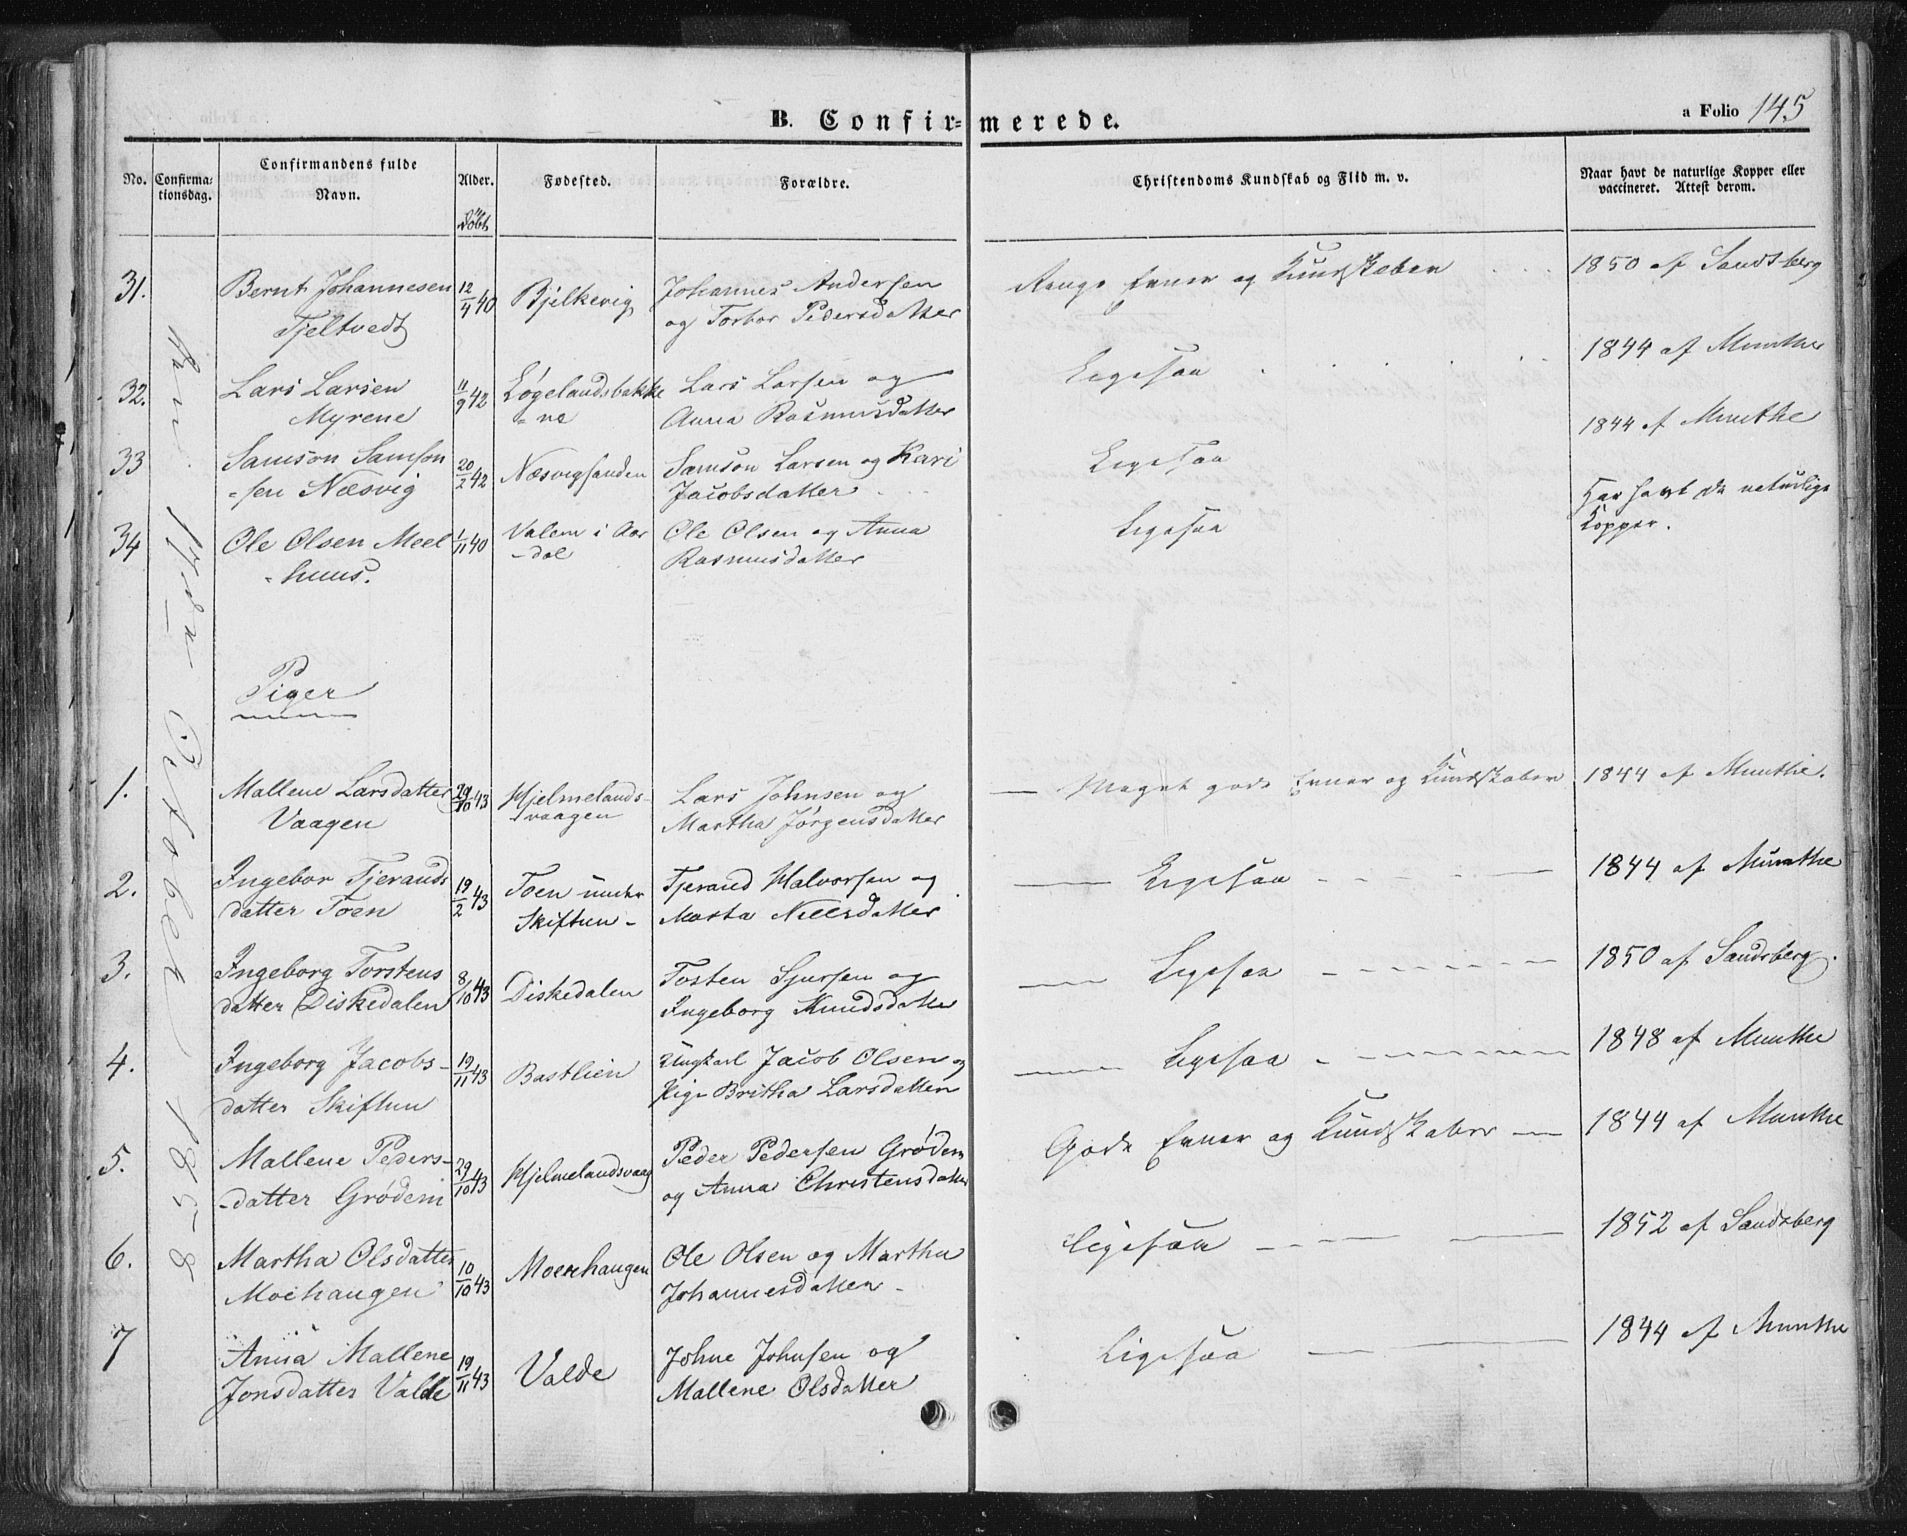 B. Confir=merede.
a Folio 145
No.
Confirma-
tionsdag.
Confirmandens fulde
Navn.
Alder.
Døbt
Fødested.
Forældre.
Christendoms Kundskab og Flid m. v.
Naar havt de naturlige Kopper eller
vaccineret. Attest derom.
den 17de October 1858
31. Bernt Johannesen 12/4 40 Bjelkevig Johannes Andersen Ringe Evner og Kundskaber 1850 af Sandsberg
Tjeltvedt og Torbor Pedersdatter
32. Lars Larsen 11/9 42 Løgelandsbakke Lars Larsen og Ligesaa 1844 af Munthe
Myrene -ne Anna Rasmusdatter
33 Samson Samson 20/2 42 Næsvigsanden Samson Larsen og Kari Ligesaa 1844 af Munthe
-sen Næsvig Jacobsdatter
34 Ole Olsen Meel 1/11 40 Valem i Aar Ole Olsen og Anna Ligesaa Har havt de naturlige
-huus. -dal Rasmusdatter Kopper.
Piger
1. Mallene Larsdatter 29/10 43 Hjelmelands- Lars Johnsen og Meget gode Evner og Kundskaber 1844 af Munthe.
Vaagen vaagen Martha Jørgensdatter
2. Ingebor Tjerands 19/2 43 Toen under Tjerand Halvorsen og Ligesaa 1844 af Munthe
datter Toen Skiftun - Marta Nielsdatter
3. Ingeborg Torstens 8/10 43 Diskedalen Tosten Sjursen og Ligesaa 1850 af Sandsberg.
datter Diskedalen Ingeborg Knudsdatter
4. Ingeborg Jacobs- 19/11 43 Bastlien Ungkarl Jacob Olsen og Ligesaa 1848 af Munthe
datter Skiftun Pige Britha Larsdatter
5. Mallene Peders- 29/10 43 Hjelmelandsvaag Peder Pedersen Grødem Gode Evner og Kundskaber 1844 af Munthe
-datter Grødem og Anna Christensdatter
6. Martha Olsdatter 10/10 43 Moehaugen Ole Olsen og Martha Ligesaa 1852 af Sandsberg
Moehaugen Johannesdatter
7 Anna Mallene 19/11 43 Valde Johne Johnsen og Ligesaa 1844 af Munthe
Jonsdatter Valde Mallene Olsdatter